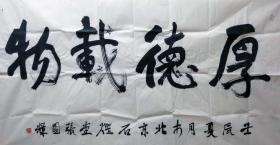 厚德載物
壬辰夏月於北京石磴堂張國輝